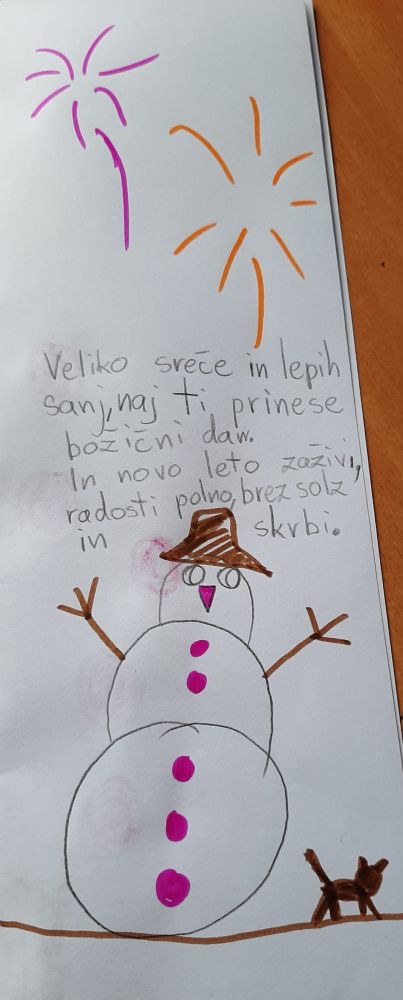 Veliko sreče in lepih
sanj, naj ti prinese
božični dan.
In novo leto zaživi,
radosti polno, brez solz
in skrbi.